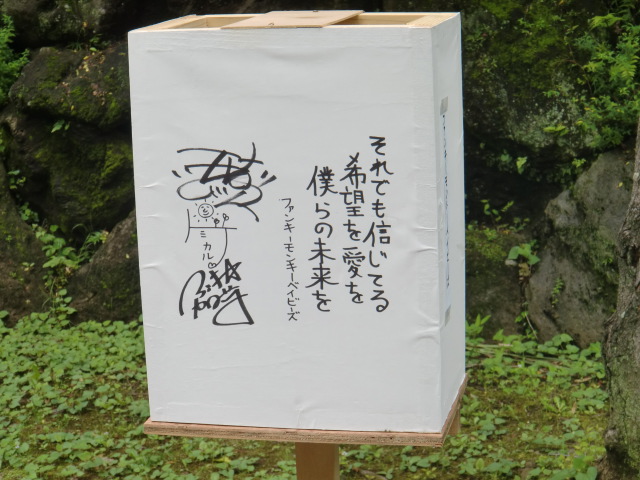 それでも信じてる
希望を愛を
僕らの未来を
ファンキーモンキーベイビーズ
ミカル